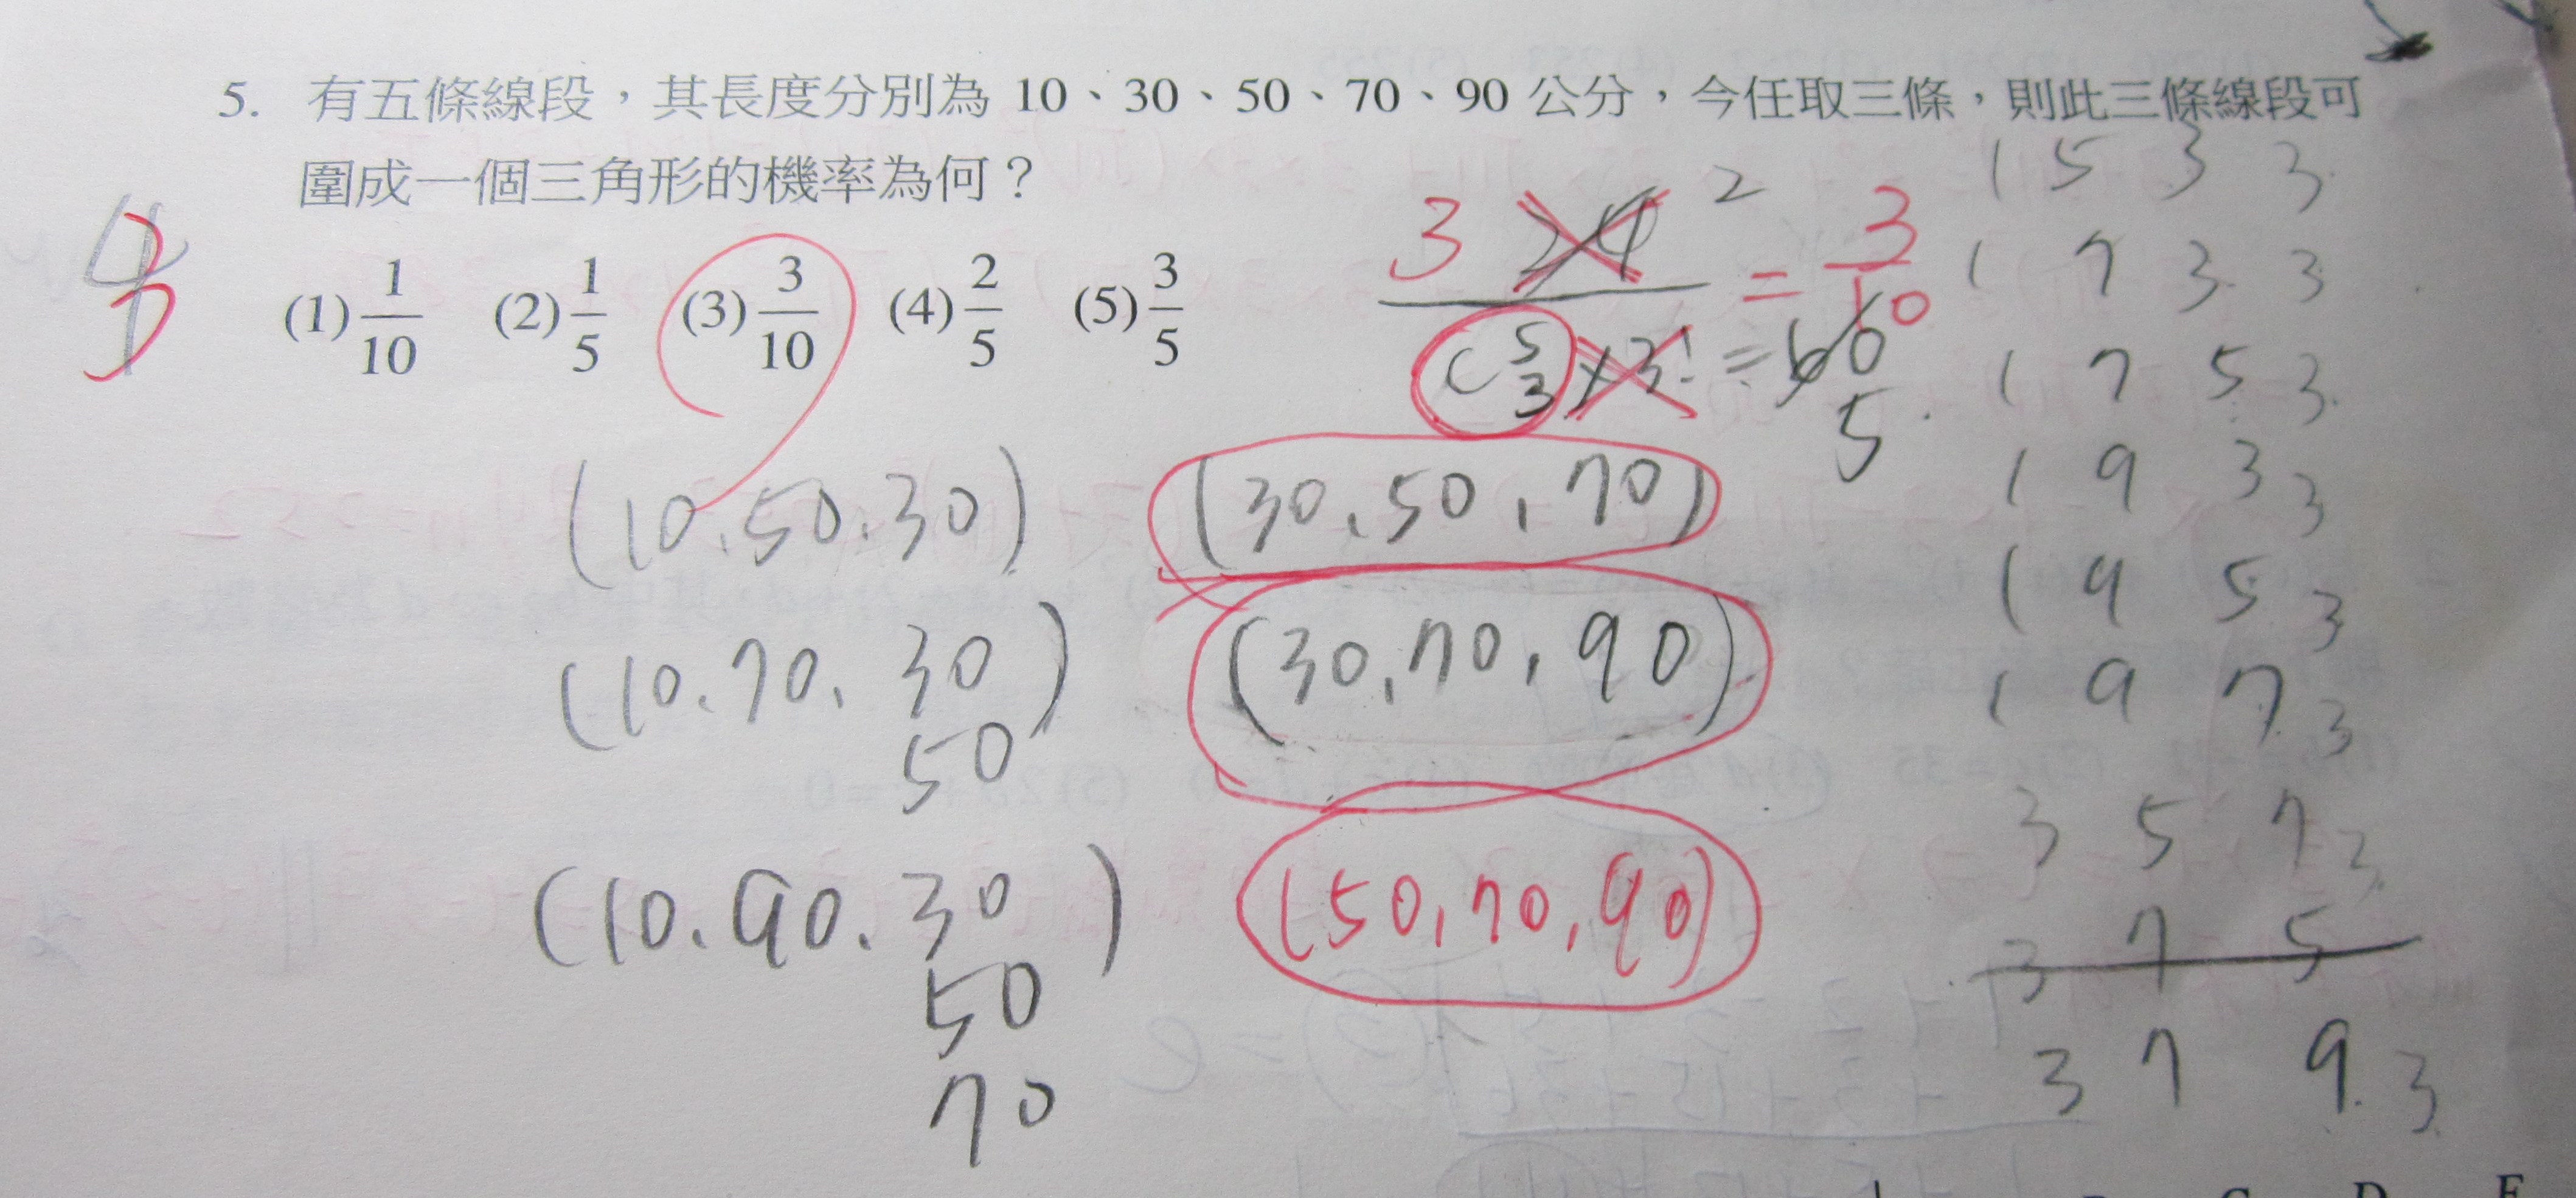 5. 有五條線段，其長度分別為 10、30、50、70、90 公分，今任取三條，則此三條線段可
圍成一個三角形的機率為何？
(1) 1/10 (2) 1/5 (3) 3/10 (4) 2/5 (5) 3/5
4
3
3 24 2
C 5 3 ×3! = 60
5
= 3/10
(10.50.30)
(10.70.30)
50
(10.90.30)
50
70
(30.50,70)
(30,70,90)
(50,70,90)
1 5 3 3
1 7 3 3
1 7 5 3
1 9 3 3
1 9 5 3
1 9 7 3
3 5 7 3
3 7 5
3 7 9 3